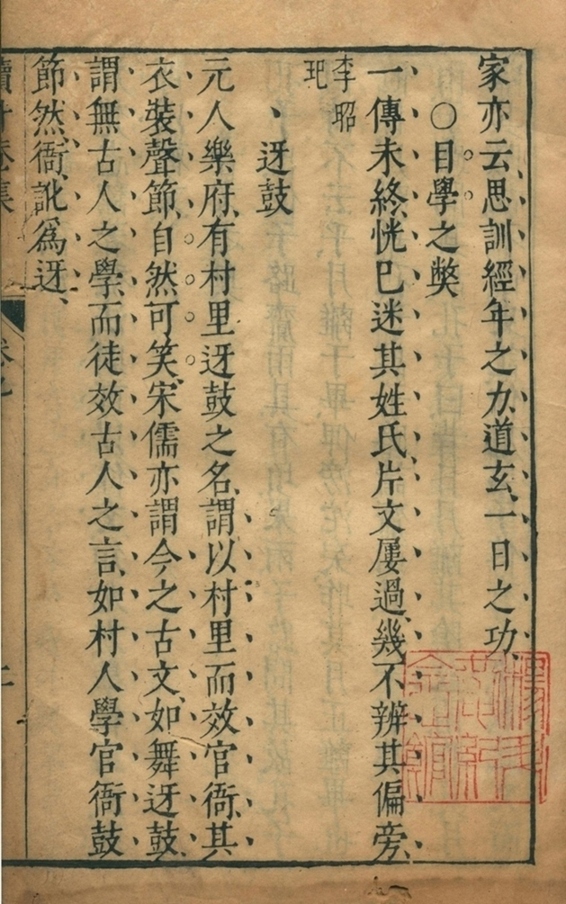 家亦云、思訓經年之力、道玄一日之功、
〇目學之獘
一傳未終、恍已迷其姓氏、片文屢過、幾不辨其偏旁、
李昭
玘
迓鼓
元人樂府、有村里迓鼓之名、謂以村里而效官衙、其
衣裝聲節、自然可笑、宋儒亦謂今之古文、如舞迓鼓、
謂無古人之學、而徒效古人之言、如村人學官衙鼓
節然、衙訛為迓、